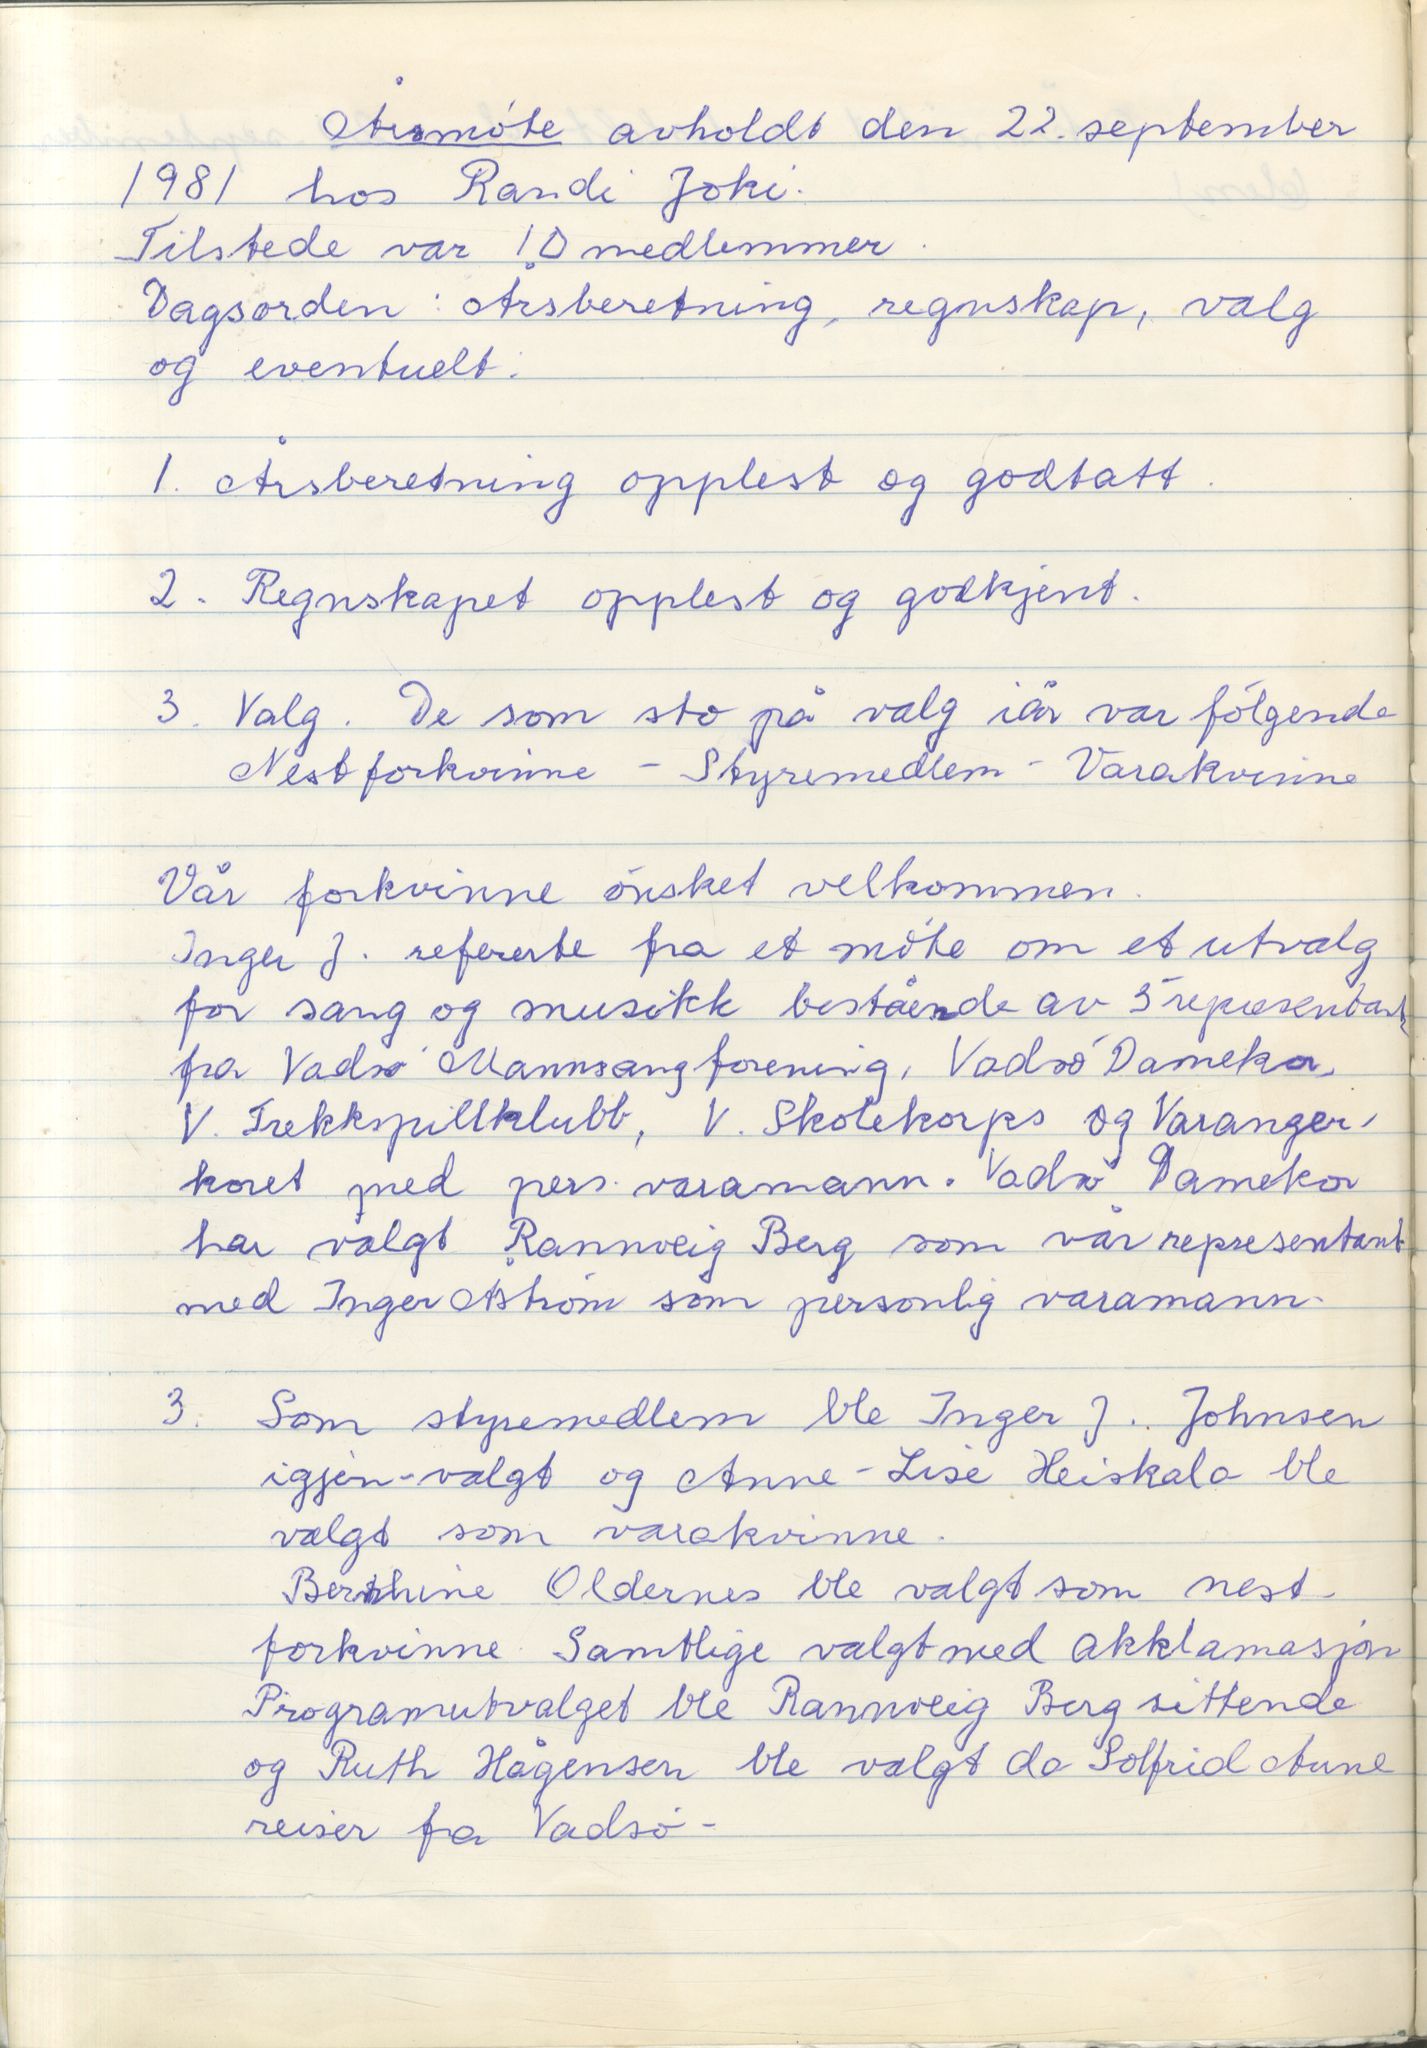 Årsmöte avholdt den 22. september
1981 hos Randi Joki.
Tilstede var 10 medlemmer.
Dagsorden: Årsberetning, regnskap, valg
og eventuelt.
1. Årsberetning opplest og godtatt.
2. Regnskapet opplest og godkjent.
3. Valg. De som sto på valg iår var fölgende
Nestforkvinne - Styremedlem - Varakvinne
Vår forkvinne önsket velkommen.
Inger J. refererte fra et möte om et utvalg
for sang og musikk bestående av 5 representant
fra Vadsö Mannsangforening, Vadsö Damekor,
V. Trekkspillklubb, V. Skolekorps og Varanger-
koret med pers. varamann. Vadsö Damekor
har valgt Rannveig Berg som vår representant
med Inger Åström som personlig varamann.
3. Som styremedlem ble Inger J. Johnsen
igjen-valgt og Anne-Lise Heiskala ble
valgt som varakvinne.
Berthine Oldernes ble valgt som nest-
forkvinne. Samtlige valgt med akklamasjon
Programutvalget ble Rannveig Berg sittende
og Ruth Hågensen ble valgt da Solfrid Aune
reiser fra Vadsö -